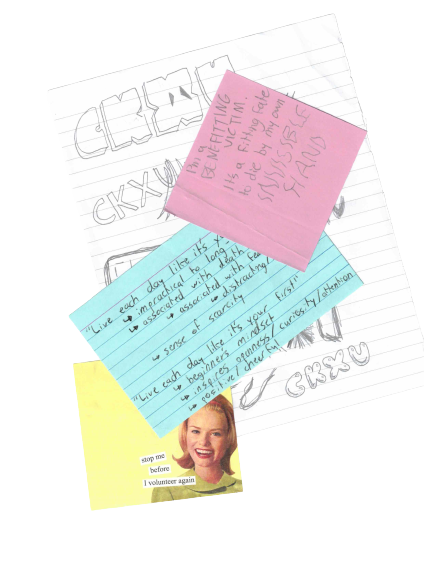 CKXU
CKXU
I'm a
BENEFITTING
VICTIM.
It's a fitting fate
to die by my own
HAND
"Live each day like it's
↳ impractical to long
↳ associated with death
↳ associated with
↳ distracting/
↳ sense of scarcity
"Live each day like it's your first"
↳ beginners mindset
↳ inspires openness/curiosity/attention
↳ positive/cheerful
CKXU
stop me
before
I volunteer again